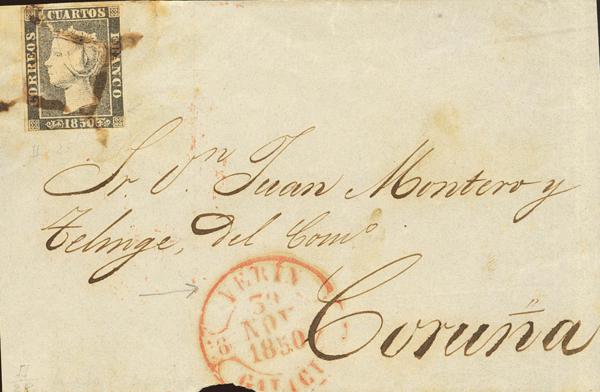 6 CUARTOS
CORREOS
FRANCO
1850
Sr. Dn. Juan Montero y
Telinge, del Como.
Coruña
VERIN
30
NOV
1850
GALICI